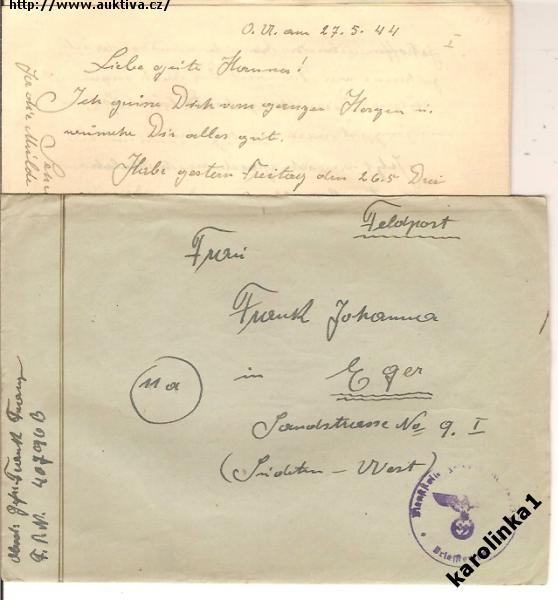 http://www.auktiva.cz/
O. U. am 27.5.44
I
Liebe gute Hanna!
Ich grüsse Dich vom ganzen Herzen u.
wünsche Dir alles gute.
Habe gestern Freitag den 26.5 Dei
Feldpost
Frau
Frank Johanna
11a
in Eger
Sandstrasse No 9. I
(Sudeten – West)
Frank Franz
F.P.N. 40790 B
Briefst
karolinka1